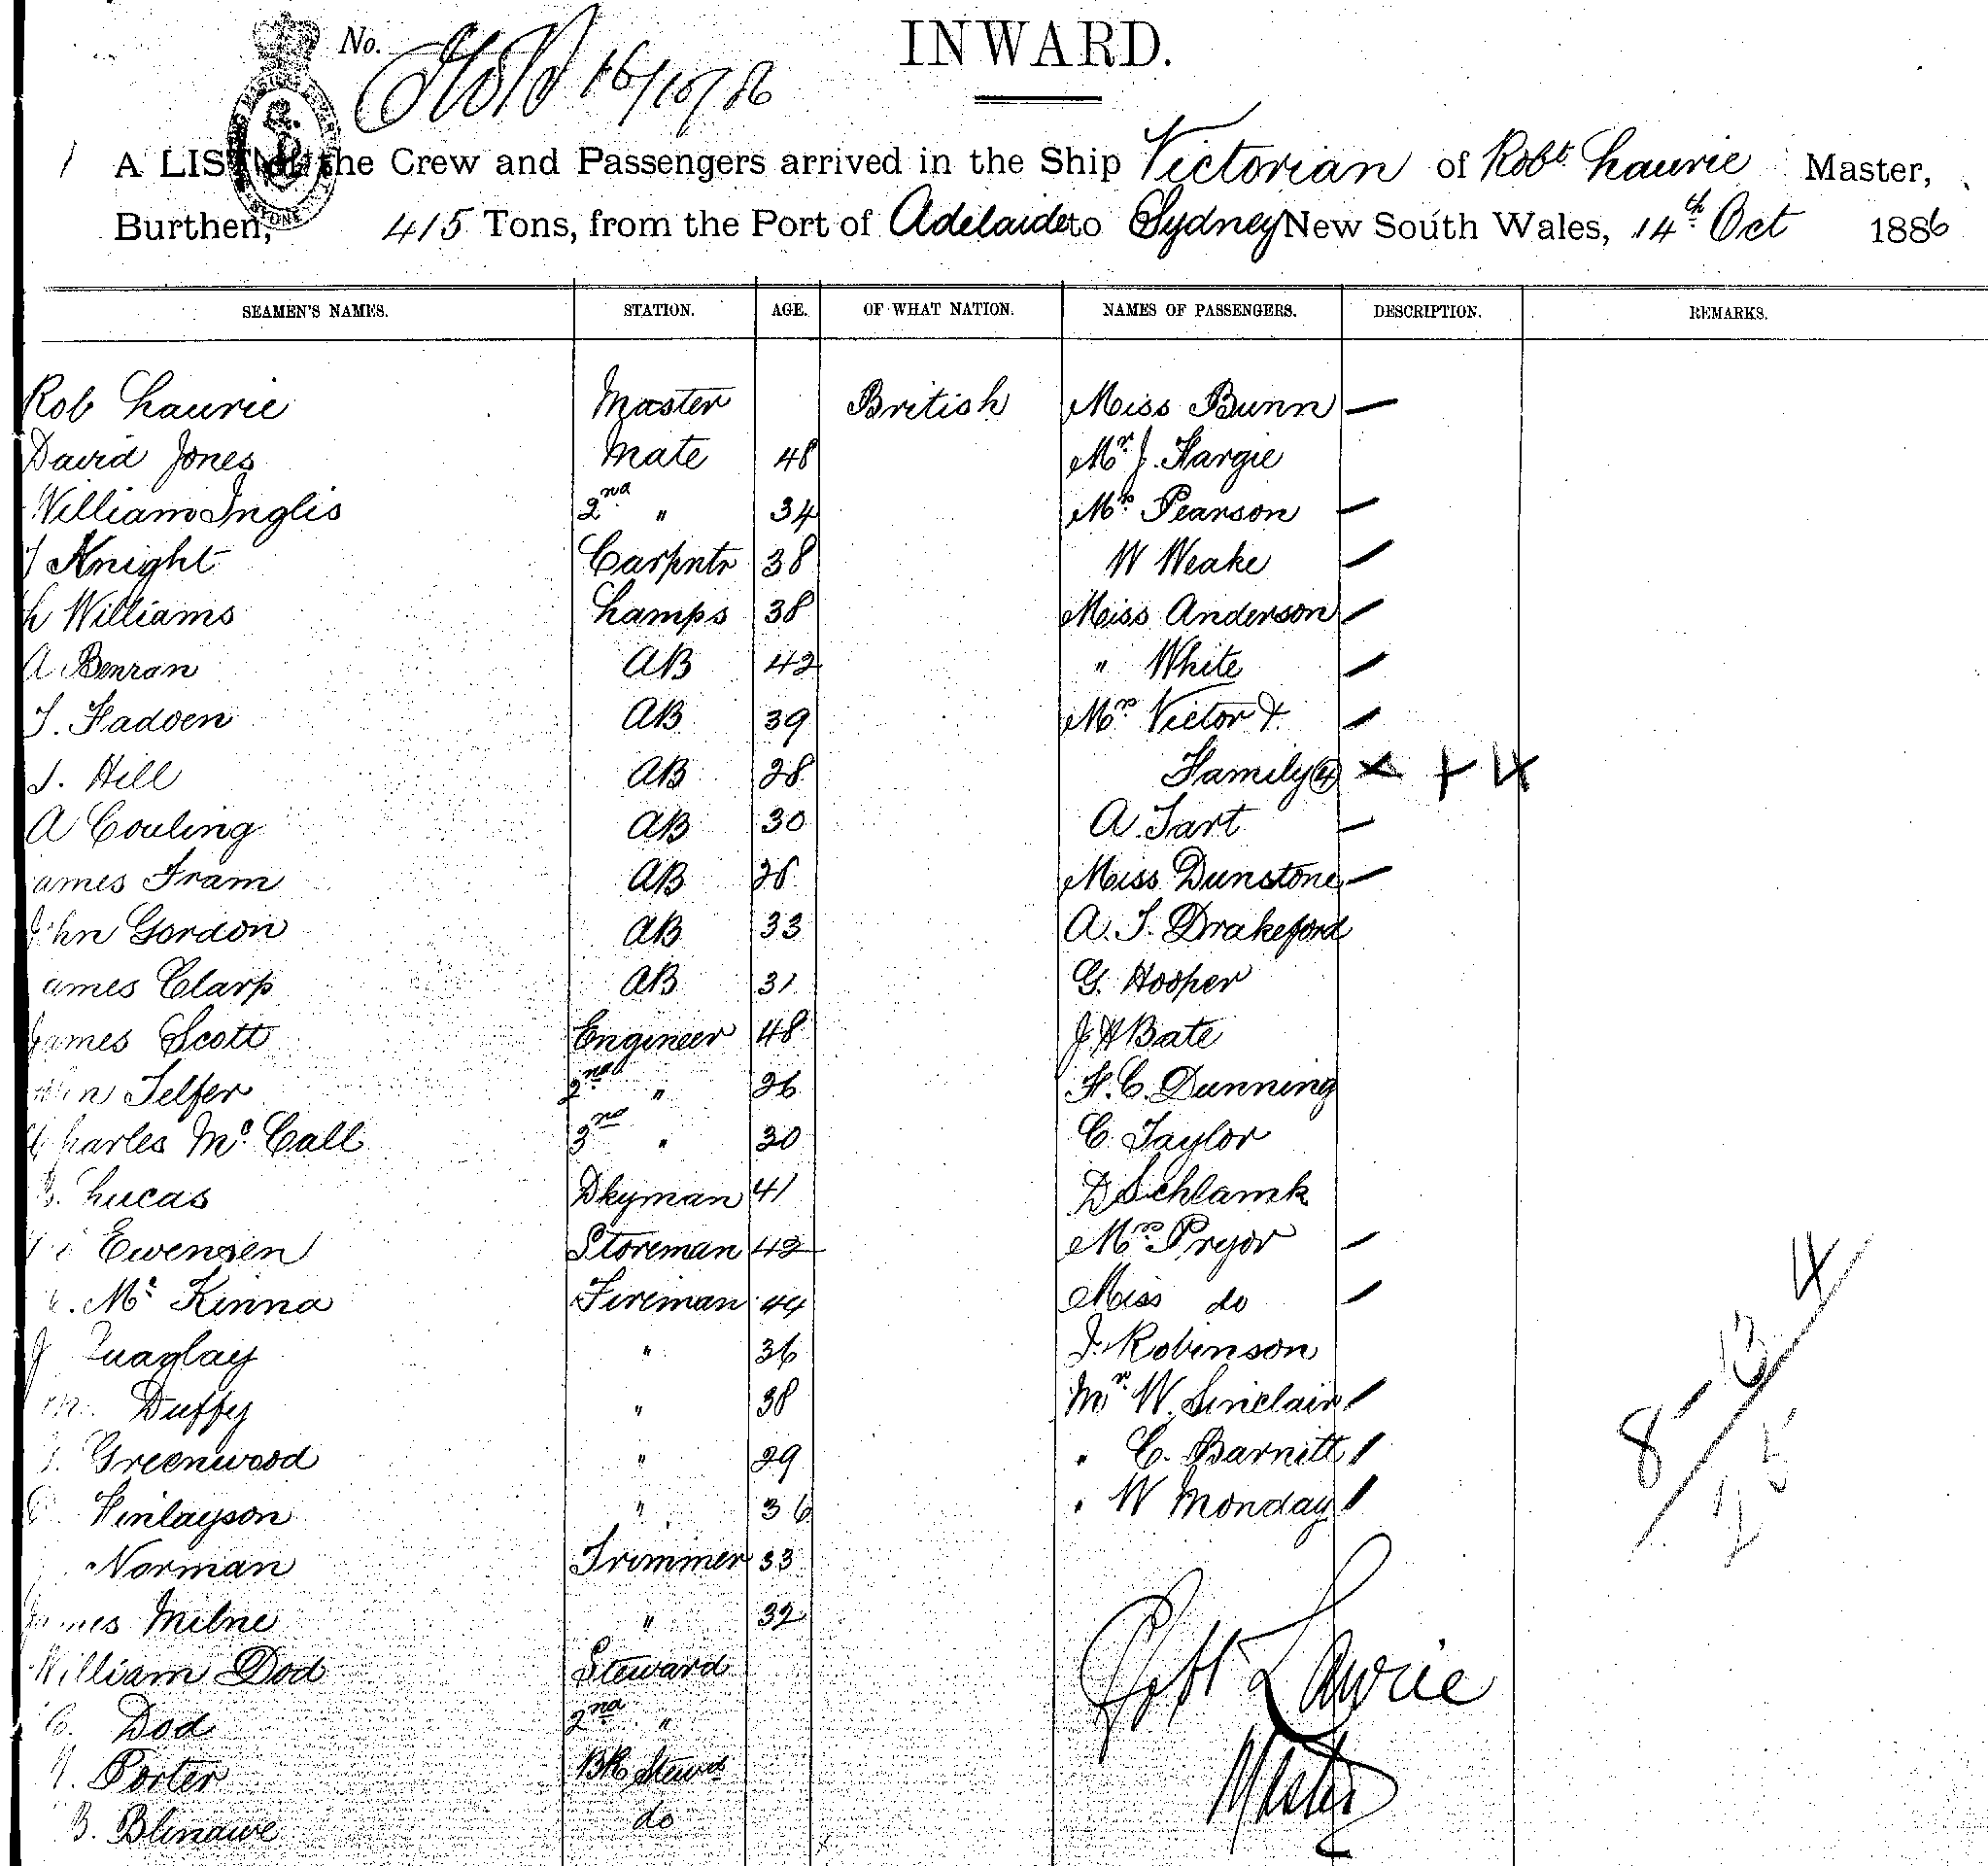 No. 16/10/86
INWARD.
A LIST of the Crew and Passengers arrived in the Ship Victorian of Robt. Laurie Master,
Burthen, 415 Tons, from the Port of Adelaide to Sydney New South Wales, 14th Oct 1886
SEAMEN'S NAMES. STATION. AGE. OF WHAT NATION. NAMES OF PASSENGERS. DESCRIPTION. REMARKS.
Rob Laurie Master British Miss Bunn
David Jones Mate 48 Mr. J. Hargie
William Inglis 2nd " 34 Mrs. Pearson
Knight Carpntr 38 W Weake
L Williams Lamps 38 Miss Anderson
A Benran AB 42 " White
T. Hadoen AB 39 Mrs. Victor &
Hill AB 28 Family (4) + 4
A Couling AB 30 A. Tart
ames Fram AB 28 Miss Dunstone
John Gordon AB 33 A. T. Drakeford
ames Clarp AB 31 G. Hooper
James Scott Engineer 48 J H Bate
Telfer 2nd " 26 H. C. Dunning
Charles Mc. Call 3rd " 30 C. Taylor
Lucas Dkyman 41 D Schlamk
Ewensen Storeman 42 Mrs. Pryor
Mc Kinna Fireman 44 Miss do
J Quaglay " 36 J. Robinson
Duffy " 38 Mr. W. Sinclair
Greenwood " 29 " C. Barnitt
Finlayson " 36 " W Monday
Norman Trimmer 33
James Milne " 32
William Dod Steward
C. Dod 2nd "
Porter BR Stewd
B. Blinawe do
4
13
8
25
Robt Laurie
Master